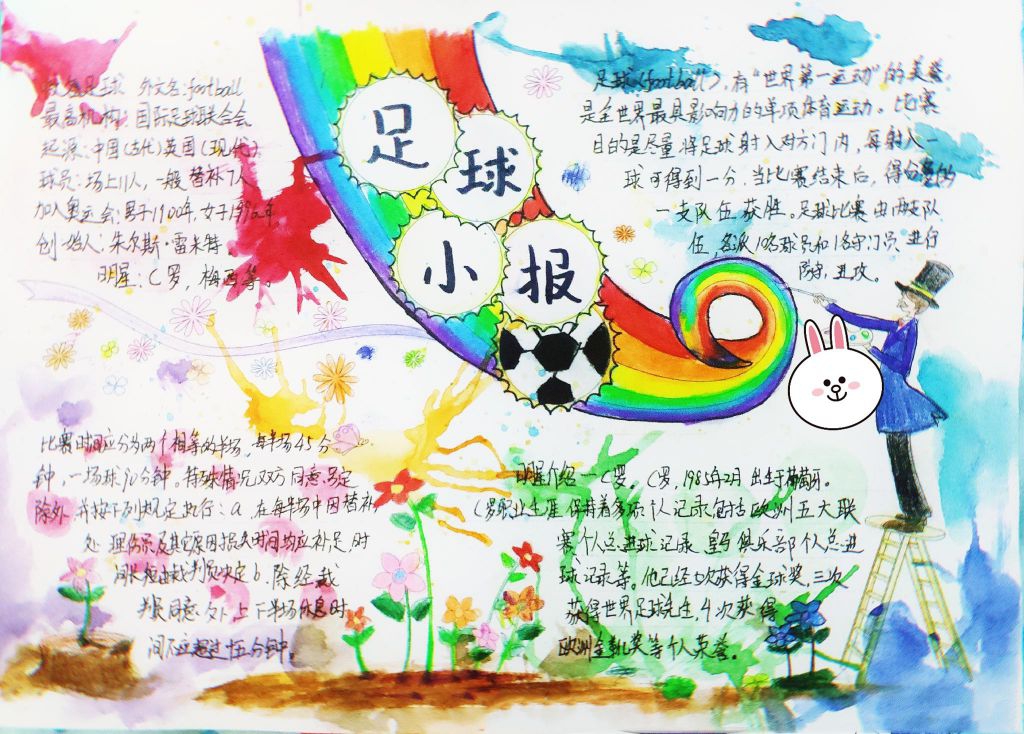 足球
小报
足球 外文名:football
最高机构:国际足球联合会
起源:中国(古代)英国(现代)
球员:场上11人,一般替补7人
加入奥运会:男子1900年,女子1996年
创始人:朱尔斯·雷米特。
明星:C罗,梅西等。
足球(football),有“世界第一运动”的美誉,
是全世界最具影响力的单项体育运动。比赛
目的是尽量将足球射入对方门内,每射入一
球可得到一分,当比赛结束后,得分 的
一支队伍获胜。足球比赛由两支队
伍,各派10名球员和1名守门员进行
防守、进攻。
比赛时间应分为两个相等的半场,每半场45分
钟,一场球90分钟。特殊情况双方同意另定
除外,并按下列规定执行:a,在每半场中因替补,
处理伤员及其它原因损失时间均应补足,时
间长短由裁判员决定b.除经裁
判员同意外,上下半场休息时
间不应超过十五分钟。
明星介绍 C罗。C罗,1985年2月出生于葡萄牙。
C罗职业生涯保持着多项个人记录包括欧洲五大联
赛个人总进球记录 皇马俱乐部个人总进
球记录等。他已经 次获得金球奖,三次
获得世界足球先生,4次获得
欧洲金靴奖等个人荣誉。